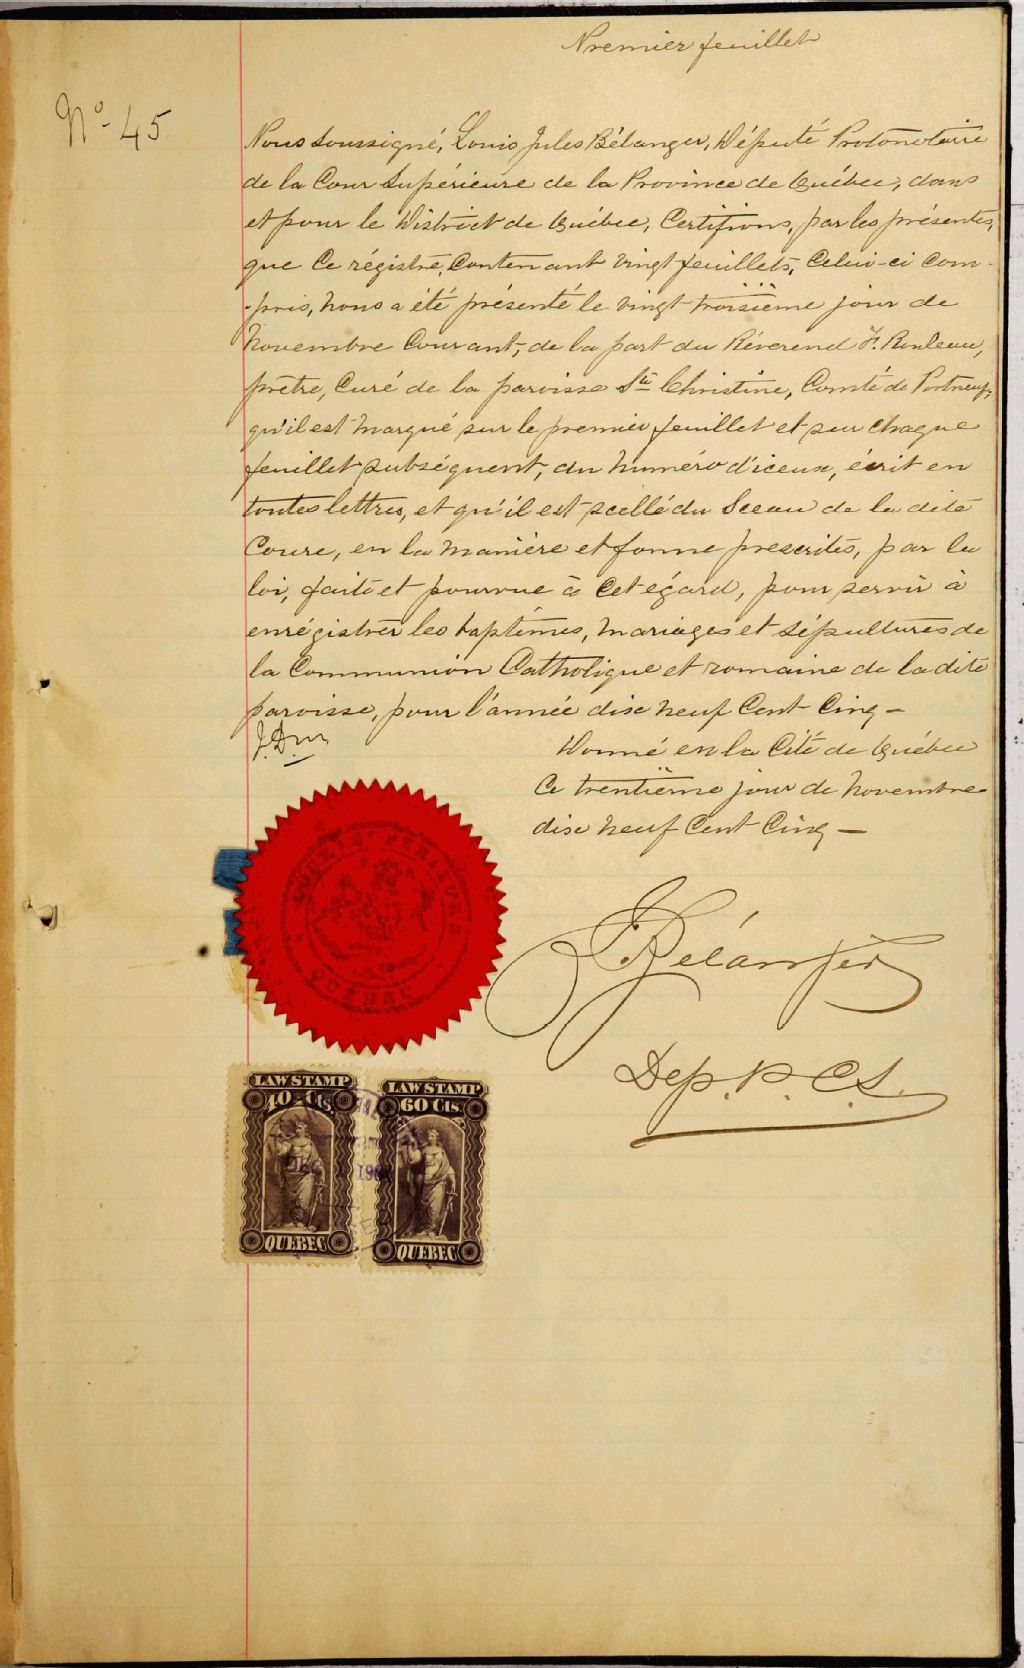 Premier feuillet
No. 45
Nous soussigné, Louis Jules Bélanger, Député Protonotaire
de la Cour Supérieure de la Province de Québec, dans
et pour le District de Québec, Certifions, par les présentes,
que ce régistre, contenant vingt feuillets, celui-ci com-
-pris, nous a été présenté le vingt troisième jour de
Novembre courant, de la part du Révérend F. Rouleau,
prêtre, Curé de la paroisse Ste Christine, Comté de Portneuf,
qu'il est marqué sur le premier feuillet et sur chaque
feuillet subséquent, du numéro d'iceux, écrit en
toutes lettres, et qu'il est scellé du Sceau de la dite
Coure, en la manière et forme prescrites, par la
loi, faite et pourvue à cet égard, pour servir à
enrégistrer les baptêmes, mariages et sépultures de
la Communion Catholique et romaine de la dite
paroisse, pour l'année dix neuf Cent Cinq —
Donné en la Cité de Québec
Ce trentième jour de novembre
dix neuf Cent Cinq —
Bélanger
Dep. P. C. S.
QUEBEC
LAW STAMP
40 Cts.
QUEBEC
LAW STAMP
60 Cts.
QUEBEC